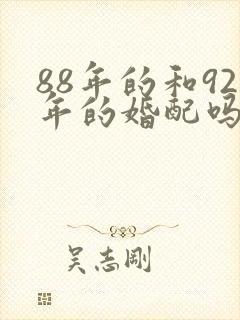 88年的和92
年的婚配吗
吴志刚